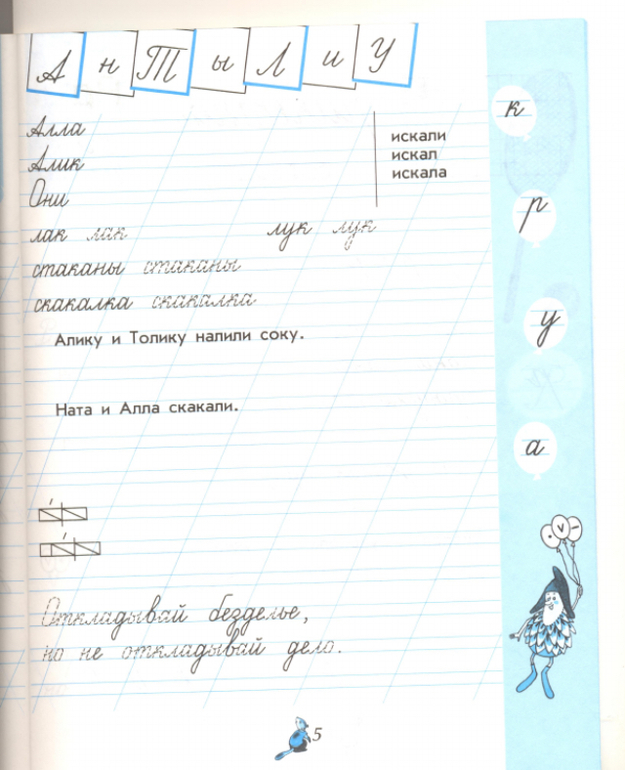 А н Т ы Л и У
Алла
Алик
Они
искали
искал
искала
лак лак лук лук
стаканы стаканы
скакалка скакалка
Алику и Толику налили соку.
Ната и Алла скакали.
Откладывай безделье,
но не откладывай дело.
к
р
у
а
5